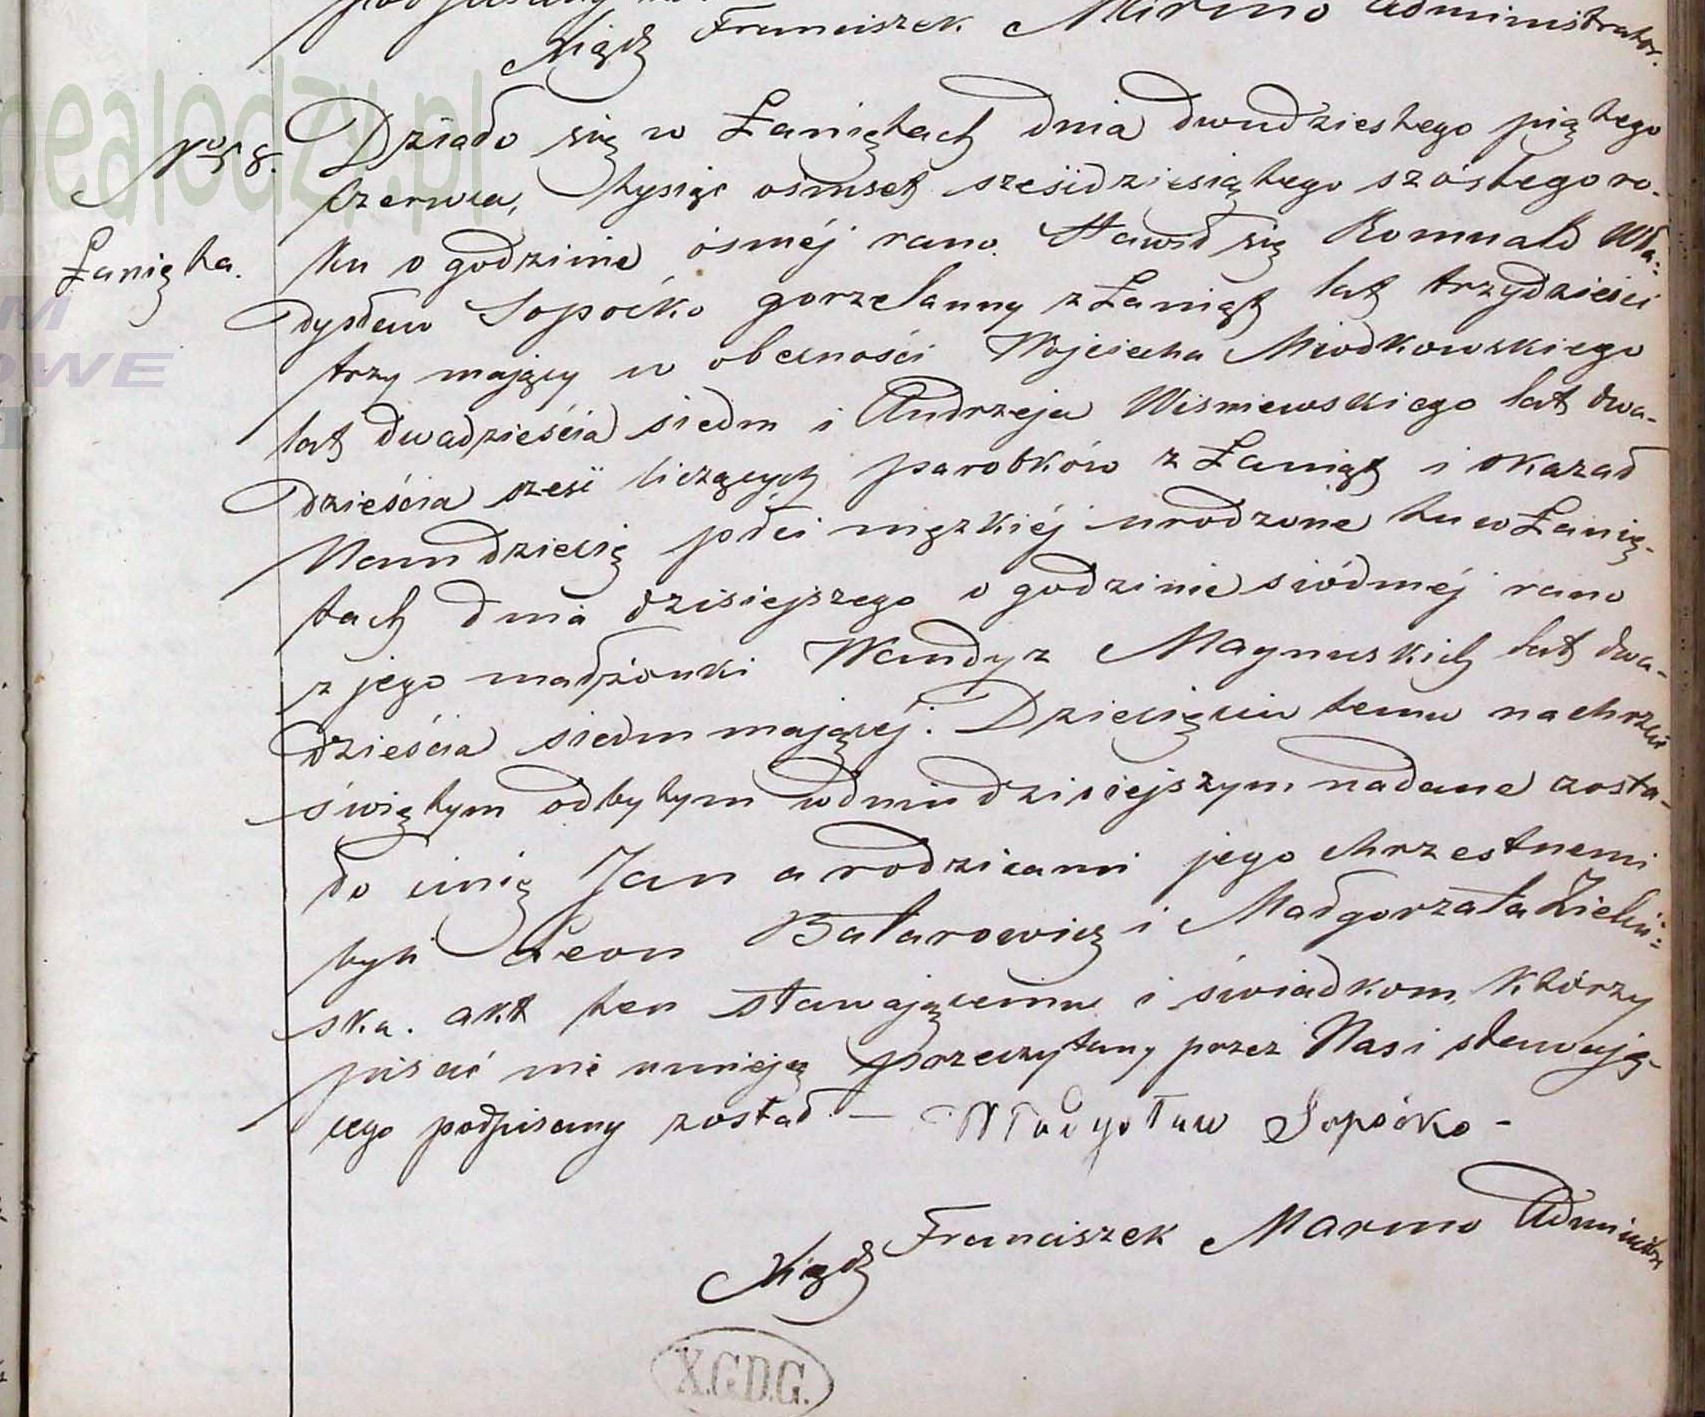 Xiądz Franciszek Marmo Administrator.
No 58.
Łanięta.
Działo się w Łaniętach dnia dwudziestego piątego
Czerwca, tysiąc ośmset sześćdziesiątego szóstego ro-
ku o godzinie ósméj rano. Stawił się Romuald Wła=
dysław Sopoćko gorzelanny z Łaniąt lat trzydzieści
trzy mający w obecności Wojciecha Miodkowskiego
lat dwadzieścia siedm i Andrzeja Wiśniewskiego lat dwa-
dzieścia sześć liczących parobków z Łaniąt i okazał
Nam dziecię płci męzkiéj urodzone tu w Łanię-
tach dnia dzisiejszego o godzinie siódméj rano
z jego małżonki Wandy z Magnuskich lat dwa-
dzieścia siedm mającéj. Dziecięciu temu na chrzcie
świętym odbytym w dniu dzisiejszym nadane zosta-
ło imię Jan a rodzicami jego chrzestnemi
byli Leon Batarowicz i Małgorzata Zieliń=
ska. akt ten stawającemu i świadkom, którzy
pisać nie umieją przeczytany przez Nas i stawają-
cego podpisany został. — Władysław Sopoćko -
Xiądz Franciszek Marmo Administr
X.G.D.G.
nealodzy.pl
M
OWE